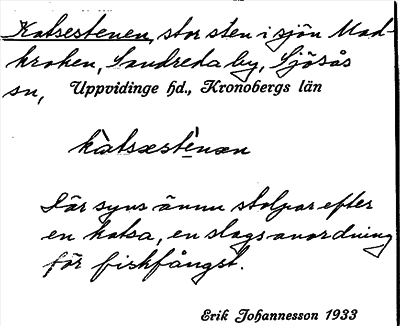 Katsestenen, stor sten i sjön Mad-
kroken, Sandreda by, Sjösås
sn, Uppvidinge hd., Kronobergs län
kàtsæste̍næn
Där syns ännu stolpar efter
en katsa, en slags anordning
för fiskfångst.
Erik Johannesson 1933